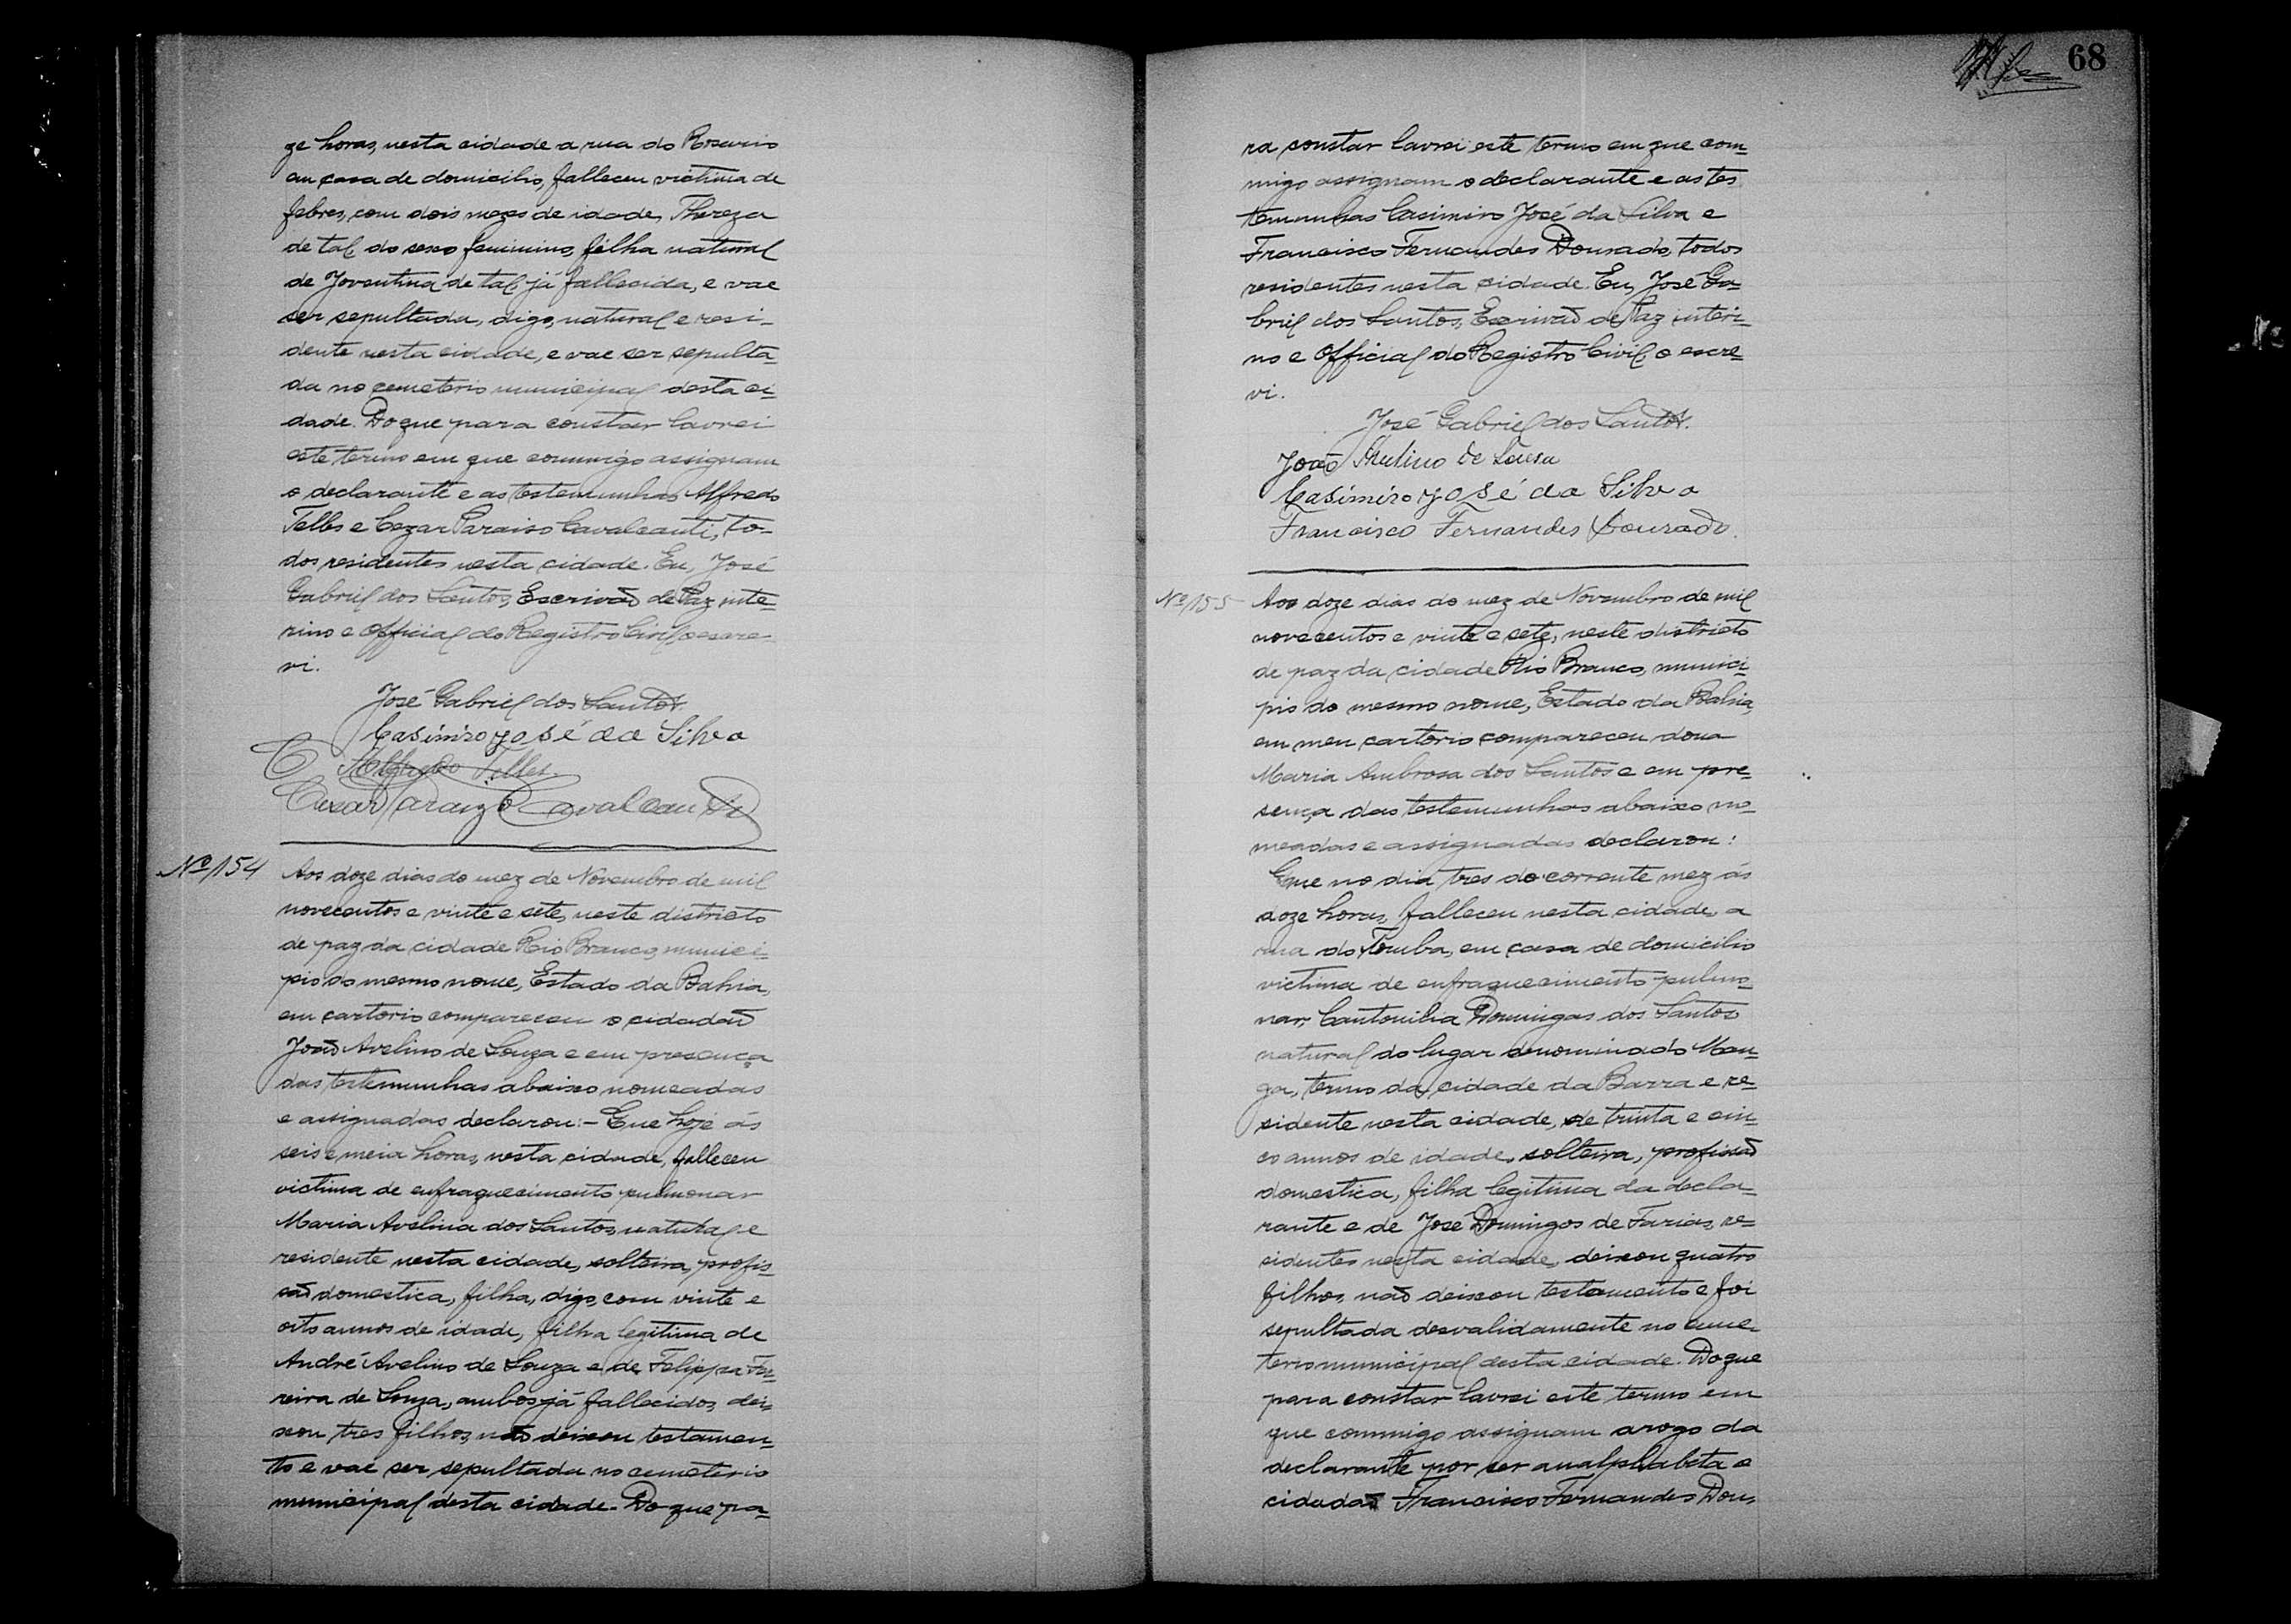 ze horas, nesta cidade a rua do Rosario
em casa de domicilio, falleceu victima de
febres, com dois mezes de idade, Thereza
de tal, do sexo feminino, filha natural
de Joventina de tal, já fallecida, e vae
ser sepultada, digo, natural e resi-
dente nesta cidade, e vae ser sepulta-
da no cemeterio municipal desta ci-
dade. Do que para constar lavrei
este termo em que commigo assignam
o declarante e as testemunhas Alfredo
Telles e Cezar Paraiso Cavalcanti, to-
dos residentes nesta cidade. Eu, José
Gabriel dos Santos, Escrivão de Paz inte-
rino e Official do Registro Civil, o escre-
vi.
José Gabriel dos Santos.
Casimiro José da Silva
Alfredo Telles.
Cezar Paraizo Cavalcanti
Nº 154
Aos doze dias do mez de Novembro de mil
novecentos e vinte e sete, neste districto
de paz da cidade Rio Branco, munici-
pio do mesmo nome, Estado da Bahia,
em cartorio compareceu o cidadão
João Avelino de Souza e em presença
das testemunhas abaixo nomeadas
e assignadas declarou:- Que hoje ás
seis e meia horas, nesta cidade, falleceu
victima de enfraquecimento pulmonar
Maria Avelina dos Santos, natural e
residente nesta cidade, solteira, profis-
são domestica, filha, digo, com vinte e
oito annos de idade, filha legitima de
André Avelino de Souza e de Felippa
reira de Souza, ambos já fallecidos, dei-
xou tres filhos, não deixou testamen-
to e vae ser sepultada no cemeterio
municipal desta cidade. Do que pa-
68
ra constar lavrei este termo em que com-
migo assignam o declarante e as tes
temunhas Casimiro José da Silva e
Francisco Fernandes Dourado, todos
residentes nesta cidade. Eu, José Ga-
briel dos Santos, Escrivão de Paz interi-
no e Official do Registro Civil, o escre-
vi.
José Gabriel dos Santos.
João Avelino de Souza
Casimiro José da Silva
Francisco Fernandes Dourado.
Nº 155
Aos doze dias do mez de Novembro de mil
novecentos e vinte e sete, neste districto
de paz da cidade Rio Branco, munici-
pio do mesmo nome, Estado da Bahia,
em meu cartorio compareceu dona
Maria Ambrosa dos Santos e em pre-
sença das testemunhas abaixo no-
meadas e assignadas declarou:
Que no dia tres do corrente mez ás
doze horas, falleceu nesta cidade, a
rua do Tomba, em casa de domicilio
victima de enfraquecimento pulmo-
nar, Cantonilia Domingas dos Santos
natural do lugar denominado Man-
ga, termo da cidade da Barra e re-
sidente nesta cidade, de trinta e cin-
co annos de idade, solteira, profissão
domestica, filha legitima da decla-
rante e de José Domingos de Farias, re-
sidentes nesta cidade, deixou quatro
filhos, não deixou testamento e foi
sepultada desvalidamente no ceme
terio municipal desta cidade. Do que
para constar lavrei este termo em
que commigo assignam arogo da
declarante por ser analphabeta o
cidadão Francisco Fernandes Dou-